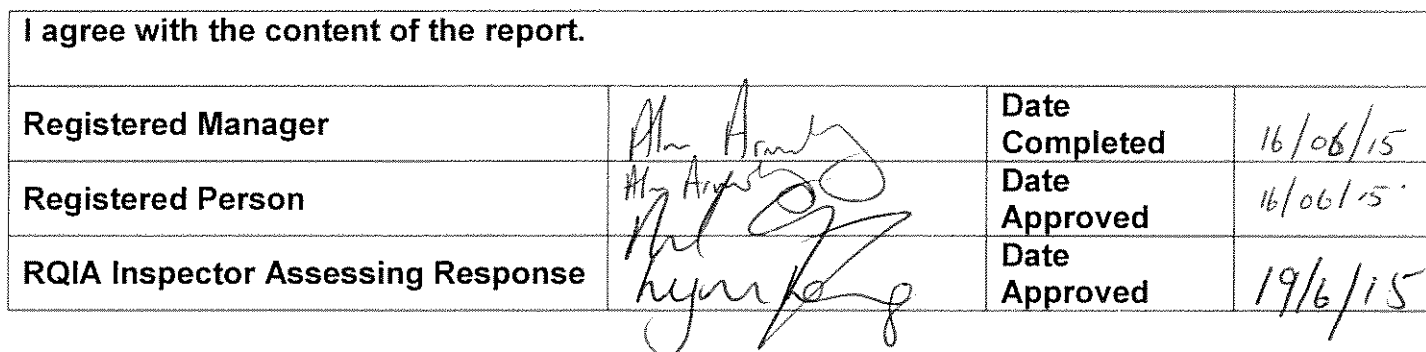 I agree with the content of the report.
Registered Manager Date Completed 16/06/15
Registered Person Date Approved 16/06/15
RQIA Inspector Assessing Response Date Approved 19/6/15